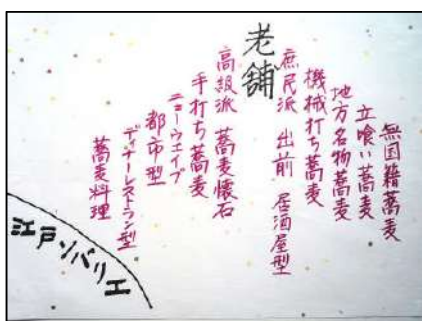 無国籍蕎麦
立喰い蕎麦
地方名物蕎麦
機械打ち蕎麦
庶民派 出前 居酒屋型
老舗
高級派 蕎麦懐石
手打ち蕎麦
ニューウエイブ
都市型
ディナーレストラン型
蕎麦料理
江戸ソバリエ